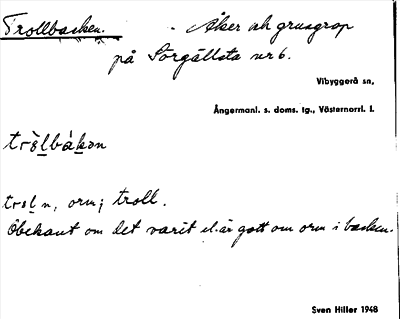 Trollbacken. - Åker och grusgrop
på Sörgällsta nr 6.
Vibyggerå sn,
Ångermanl. s. doms. tg., Västernorrl. l.
tròḷbáḵən
troḷ n, orm; troll.
Obekant om det varit el. är gott om orm i backen.
Sven Hiller 1948